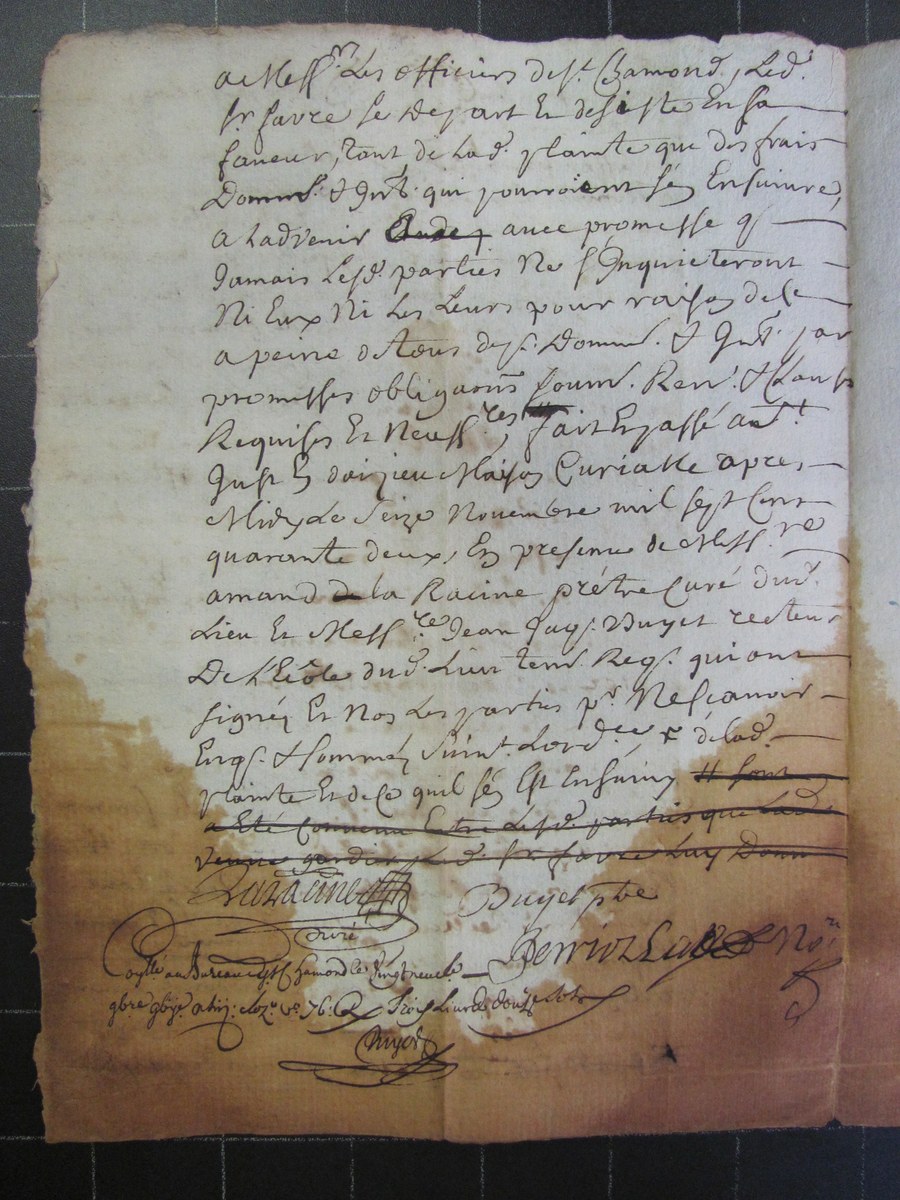 a Messrs. Les officiers de st. Chamond, Led.
sr. favre se Depart Et desiste En sa
faveur, tant de Lad. plainte que des frais
Domm. & Int. qui pourroient sen Ensuivre,
a Ladvenir avec promesse q
Jamais Lesd. parties Ne sInquieteront
Ni Eux Ni Les Leurs pour raison de Ce
a peine de tous desp. Domm. & Int. par
promesses obligaons soum. Ren. & Claus
Requises Et Necessres, fait Et passé aud.
Just En doizieu Maison Curialle apres
Midy Le Seize Novembre mil sept Cent
quarante deux, En presence de Messre
amand de la Racine prêtre Curé dud.
Lieu Et Messre Jean Jaqs. Buyet recteur
De L'Ecôle dud. Lieu tem. Reqs. qui ont
signéz Et Non Les parties pr. Ne scavoir
Enqs. & Sommez Suivt. Lord.ce de lad.
plainte Et de Ce quil sen Est Ensuivy # sont
a Eté Convenu Entre Lesd. parties que Lad.
veuve Led. sr favre Luy Donn
Laracine
Curé
Buyet ptre
Perriol No.re
au Bureau de st Chamond le Vingt neuf
9bre Trois Livres douze sols